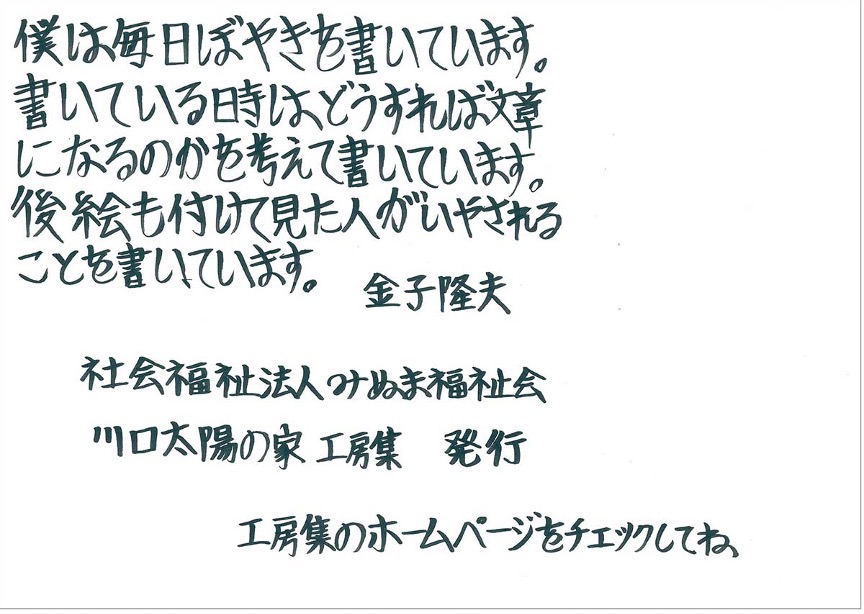 僕は毎日ぼやきを書いています。
書いている時は、どうすれば文章
になるのかを考えて書いています。
後絵も付けて見た人がいやされる
ことを書いています。
金子隆夫
社会福祉法人みぬま福祉会
川口太陽の家 工房集 発行
工房集のホームページをチェックしてね、